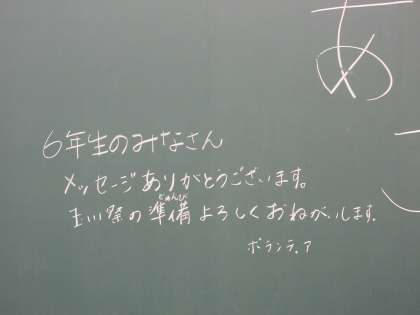 あ
6年生のみなさん
メッセージありがとうございます。
じゅんび
玉川祭の準備よろしくおねがいします。
ボランティア